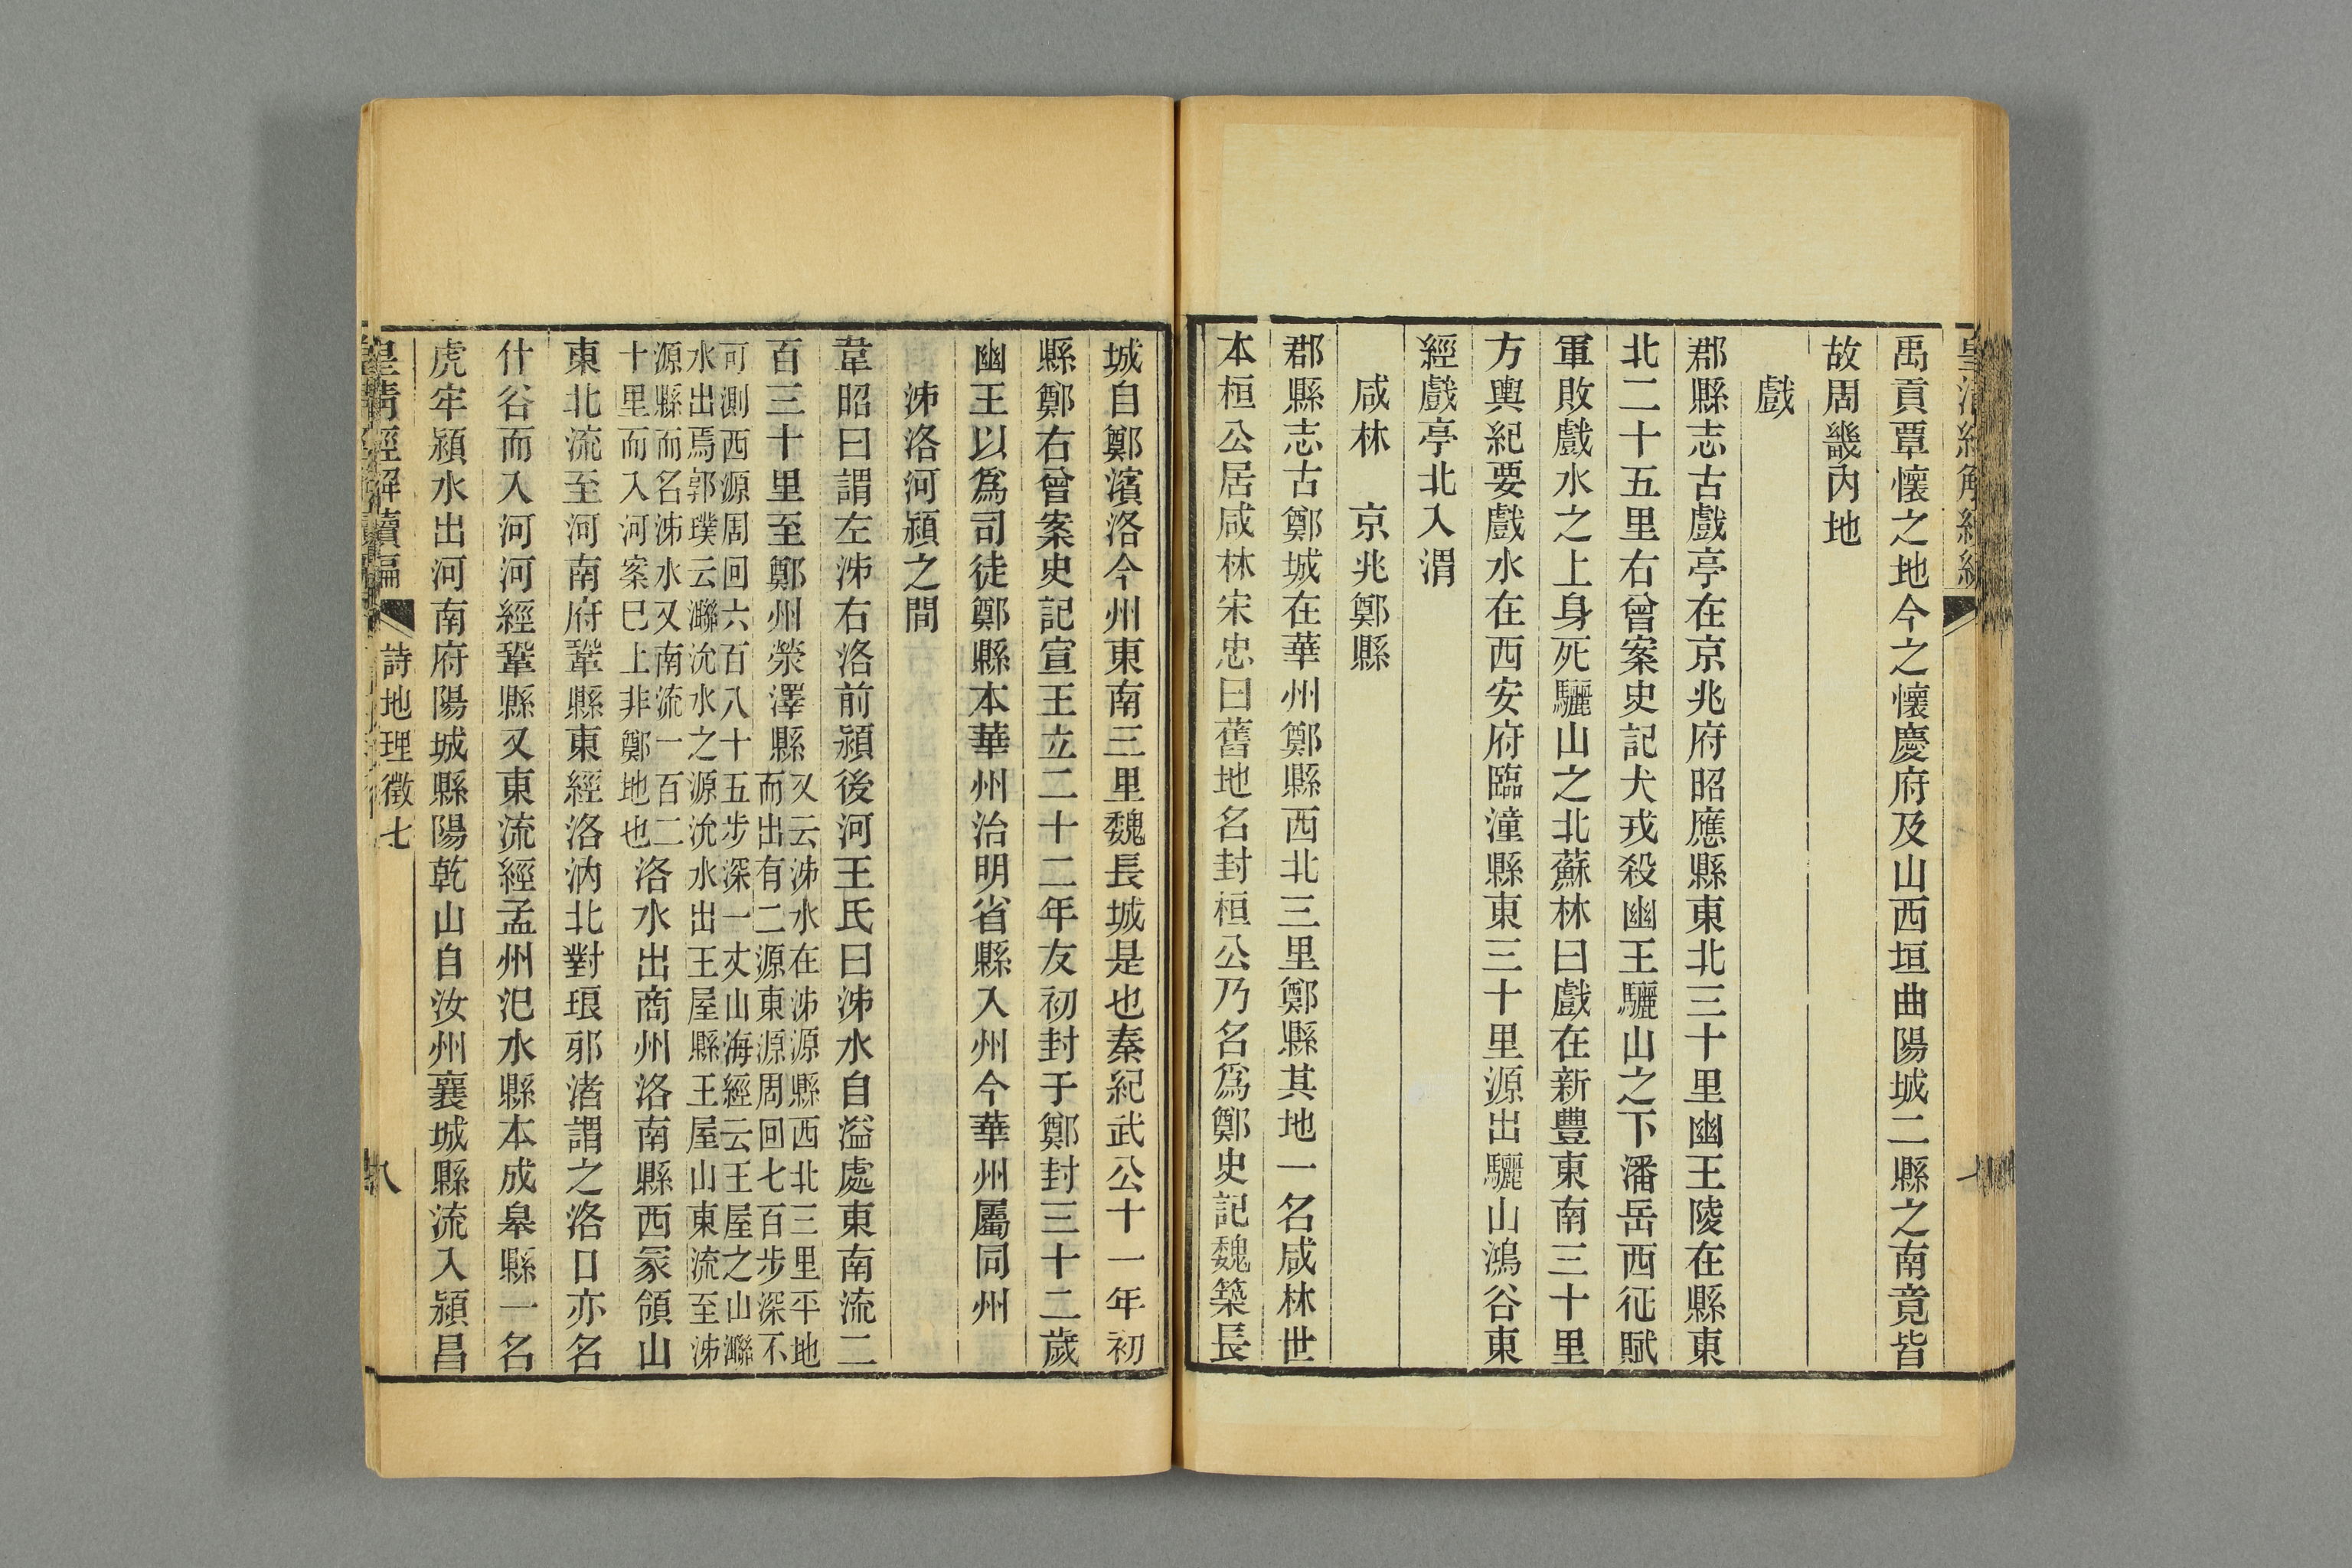 禹貢覃懷之地今之懷慶府及山西垣曲陽城二縣之南竟皆
故周畿內地
戲
郡縣志古戲亭在京兆府昭應縣東北三十里幽王陵在縣東
北二十五里右曾案史記犬戎殺幽王驪山之下潘岳西征賦
軍敗戲水之上身死驪山之北蘇林曰戲在新豐東南三十里
方輿紀要戲水在西安府臨潼縣東三十里源出驪山鴻谷東
經戲亭北入渭
咸林 京兆鄭縣
郡縣志古鄭城在華州鄭縣西北三里鄭縣其地一名咸林世
本桓公居咸林宋忠曰舊地名封桓公乃名爲鄭史記魏築長
城自鄭濱洛今州東南三里魏長城是也秦紀武公十一年初
縣鄭右曾案史記宣王立二十二年友初封于鄭封三十二歲
幽王以爲司徒鄭縣本華州治明省縣入州今華州屬同州
泲洛河潁之間
韋昭曰謂左泲右洛前潁後河王氏曰泲水自溢處東南流二
百三十里至鄭州滎澤縣
又云泲水在泲源縣西北三里平地
而出有二源東源周回七百步深不
可測西源周回六百八十五步深一丈山海經云王屋之山㶌
水出焉郭璞云㶌沇水之源沇水出王屋縣王屋山東流至泲
源縣而名泲水又南流一百二
十里而入河案巳上非鄭地也
洛水出商州洛南縣西冢領山
東北流至河南府鞏縣東經洛汭北對琅邪渚謂之洛口亦名
什谷而入河河經鞏縣又東流經孟州汜水縣本成皋縣一名
虎牢潁水出河南府陽城縣陽乾山自汝州襄城縣流入潁昌
皇清經解續編
詩地理徵七
八